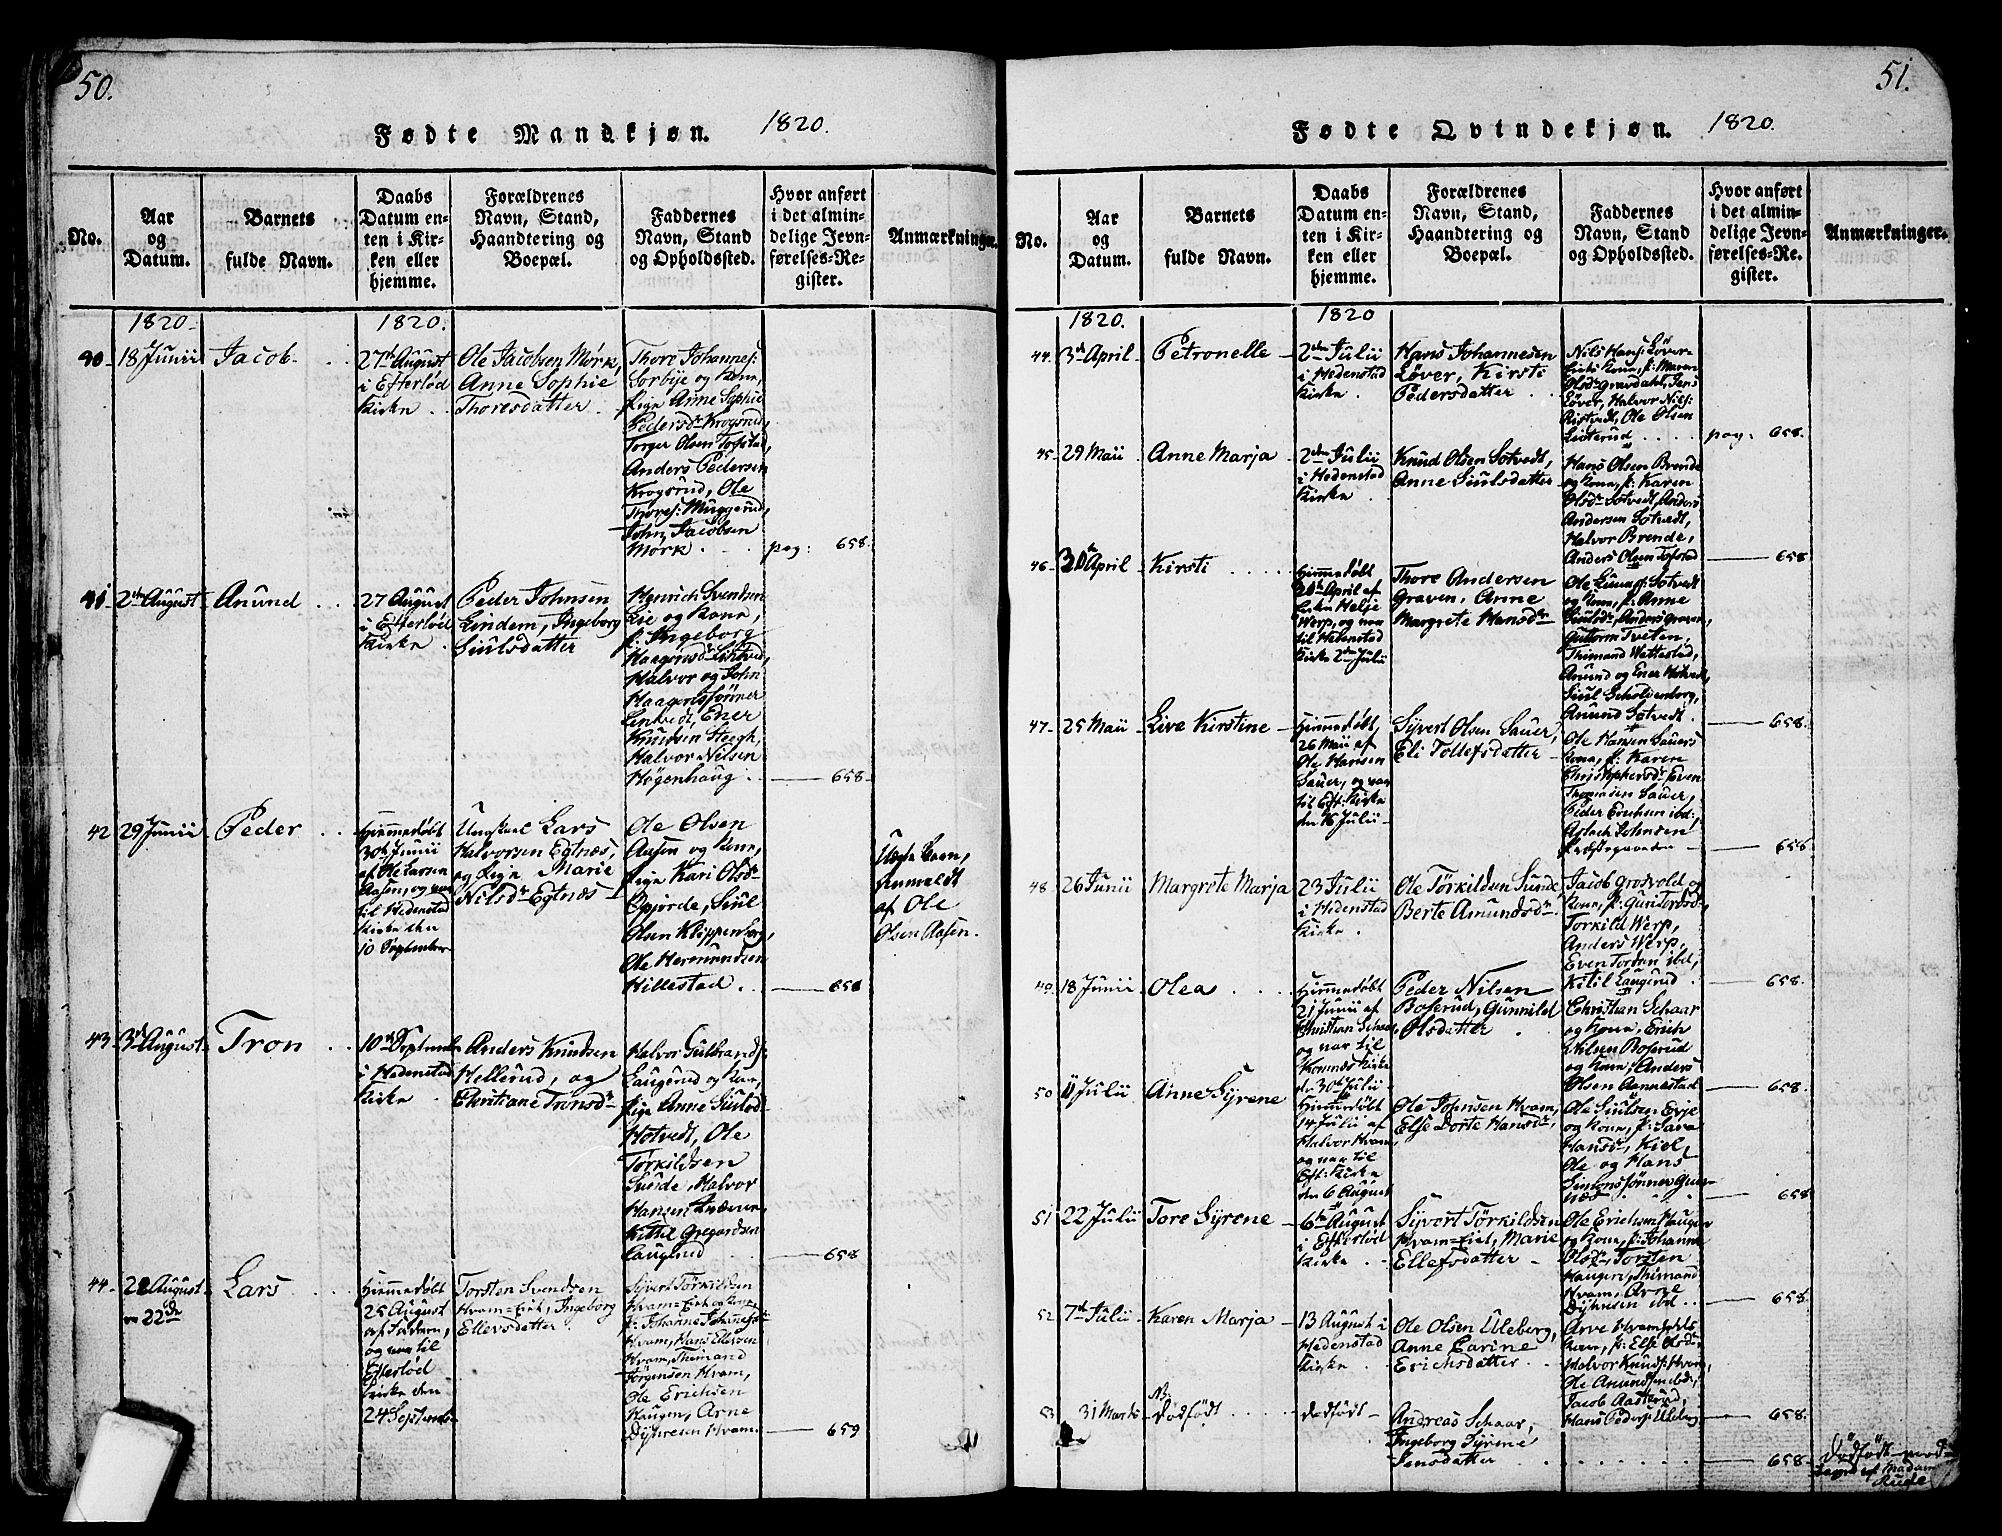 50.
Fødte Mandkjøn. 1820.
No.
Aar
og
Datum.
Barnets
fulde Navn.
Daabs
Datum en-
ten i Kir-
ken eller
hjemme.
Forældrenes
Navn, Stand,
Haandtering og
Boepæl.
Faddernes
Navn, Stand
og Opholdssted.
Hvor anført
i det almin-
delige Jevn-
førelses-Re-
gister.
Anmærkninger.
1820.
1820.
40
18 Junii
Jacob
27de August
i Efterlød
Kirke
Ole Jacobsen Mørk,
Anne Sophie
Thoresdatter
Thore Johannes:
Sorbye og Kone,
Pige Anne Sophie
Pedersdr Krogsrud,
Torger Olsen Tofstad,
Anders Pedersen
Krogsrud, Ole
Thores: Muggerud,
John Jacobsen
Mørk
pag: 658.
41
2den August
Anund
27 August
i Efterlød
Kirke
Peder Johnsen
Lindem, Ingeborg
Siulsdatter
Henrich Svendsen
Lie og Kone,
p: Ingeborg
Haagensdr Lintved,
Halvor og John
Haagenssønner
Lintvedt, Ener
Knudsen Steegh,
Halvor Nilsen
Høgenhaug
658
42
29 Junii
Peder
Hiemmedøbt
30te Junii
af Ole Larsen
Aasen, og var
til Hedenstad
Kirke den
10 September
Ungkarl Lars
Halvorsen Egtnæs,
og Pige Marie
Nilsdr Egtnæs
Ole Olsen
Aasen og Kone,
Pige Kari Olsdr
Gjørde, Siul
Olsen Klippenberg,
Ole Hermundsen
Hillestad
658
Uægte Barn,
Anmeldt
af Ole
Olsen Aasen.
43
3de August
Tron
10de Septembr
i Hedenstad
Kirke
Anders Knudsen
Hellerud, og
Christiane Tronsdr
Halvor Gulbrands:
Laugerud og Kone,
Pige Anne Siulsdr
Hotvedt, Ole
Tørkildsen
Sunde, Halvor
Hansen
Kittil Gregersen
Laugerud
658
44
August
22de
Lars
Hiemmedøbt
25 August
og var til
Efterlød
Kirke den
24 Septembr
Torsten Svendsen
Hvam-Eiet, Ingeborg
Ellevsdatter
Syvert Tørkildsen
Hvam-Eie og Kone,
p: Johanne
Hvam, Hans Ellevsen
Hvam, Thimand
Jørgensen Hvam,
Ole Erichsen
Haugen, Arne
Dyhresen Hvam
659
51.
Fødte Qvindekjøn. 1820.
No.
Aar
og
Datum.
Barnets
fulde Navn.
Daabs
Datum en-
ten i Kir-
ken eller
hjemme.
Forældrenes
Navn, Stand,
Haandtering og
Boepæl.
Faddernes
Navn, Stand
og Opholdssted.
Hvor anført
i det almin-
delige Jevn-
førelses-Re-
gister.
Anmærkninger.
1820.
1820
44
3de April
Petronelle
2den Julii
i Hedenstad
Kirke
Hans Johannesen
Løver, Kirsti
Pedersdatter
Nils Hans: Løver-
Eiets Kone, p: Maren
Olsdr Gravdahl, Jens
Løver, Halvor Nils:
Ristvedt, Ole Olsen
Listerud
pag: 658.
45
29 Maii
Anne Marja
2den Julii
i Hedenstad
Kirke
Knud Olsen Sotvedt,
Anne Siulsdatter
Hans Olsen Brende
og Kone, p: Karen
Olsdr Sotvedt, Anders
Andersen Sotvedt,
Halvor Brende,
Anders Olsen Tofstad
658
46
April
Kirsti
Hiemmedøbt
April af
Helje
Werp, og var
til Hedenstad
Kirke 2den Julii
Thore Andersen
Graven, Anne
Margrete Hansdr
Sotvedt
og Kone, p: Anne
Siulsdr, Anders Graven,
Guttorm Tveten,
Thimand Wettestad,
Anund og Ener Hotvedt,
Siul Scholdenborg,
Anund Sotvedt
658.
47
25 Maii
Live Kirstine
Hiemmedøbt
26 Maii af
Ole Hansen
Sauer, og var
til Eft: Kirke
den 16 Julii
Syvert Olsen Sauer,
Eli Tollefsdatter
Ole Hansen Sauers
Kone, p: Karen
Christophersdr, Even
Thomasen Sauer,
Peder Erichsen ibd:,
Aslach Johnsen
Præstegaarden
658
48
26 Junii
Margrete Marja
23 Julii
i Hedenstad
Kirke
Ole Tørkildsen Sunde,
Berte Amundsdr
Jacob Grosvold og
Kone, p: Guri Torsdr,
Torkild Werp,
Anders Werp,
Even ibd,
Kitil Laugerud
658.
49
18 Junii
Olea
Hiemmedøbt
21 Junii af
Christian Schaar,
og var til
Komnes Kirke
d: 30te Julii
Peder Nilsen
Boserud, Gunnild
Olsdatter
Christian Schaar
og Kone, Erich
Nilsen Boserud
og Kone, Anders
Olsen Aannestad
658.
50
11 Julii
Anne Syrene
Hiemmedøbt
14 Julii af
Halvor Hvam,
og var til
Eft: Kirke
den 6 August
Ole Johnsen Hvam,
Else Dorte Hansdr
Ole Siulsen Evje
og Kone, p: Sara
Hansdr, Kiel,
Ole og Hans
Simonssønner Gun-
næs
658
51
22 Julii
Tore Syrene
6te August
i Efterlød
Kirke
Syvert Tørkildsen
Hvam-Eiet, Marie
Ellefsdatter
Ole Erichsen Haugen
og Kone, p: Johanne
Olsdr, Torsten
Haugen, Thimand
Hvam, Arne
Dyhresen ibd
658.
52
7de Julii
Karen Marja
13 August i
Hedenstad
Kirke
Ole Olsen Uleberg,
Anne Carine
Erichsdatter
Arve Hvams
Kone, p: Else Olsdr,
Halvor Knuds: Hvam,
Ole Anundsen ibd:,
Jacob Aasterud,
Hans Peders: Uleberg
658.
53
31 Marts
NB:
Dødfødt
Dødfødt
Andreas Schaar,
Ingeborg Syrene
Jensdatter
658.
Dødfødt mod-
taget af Madam
Rude